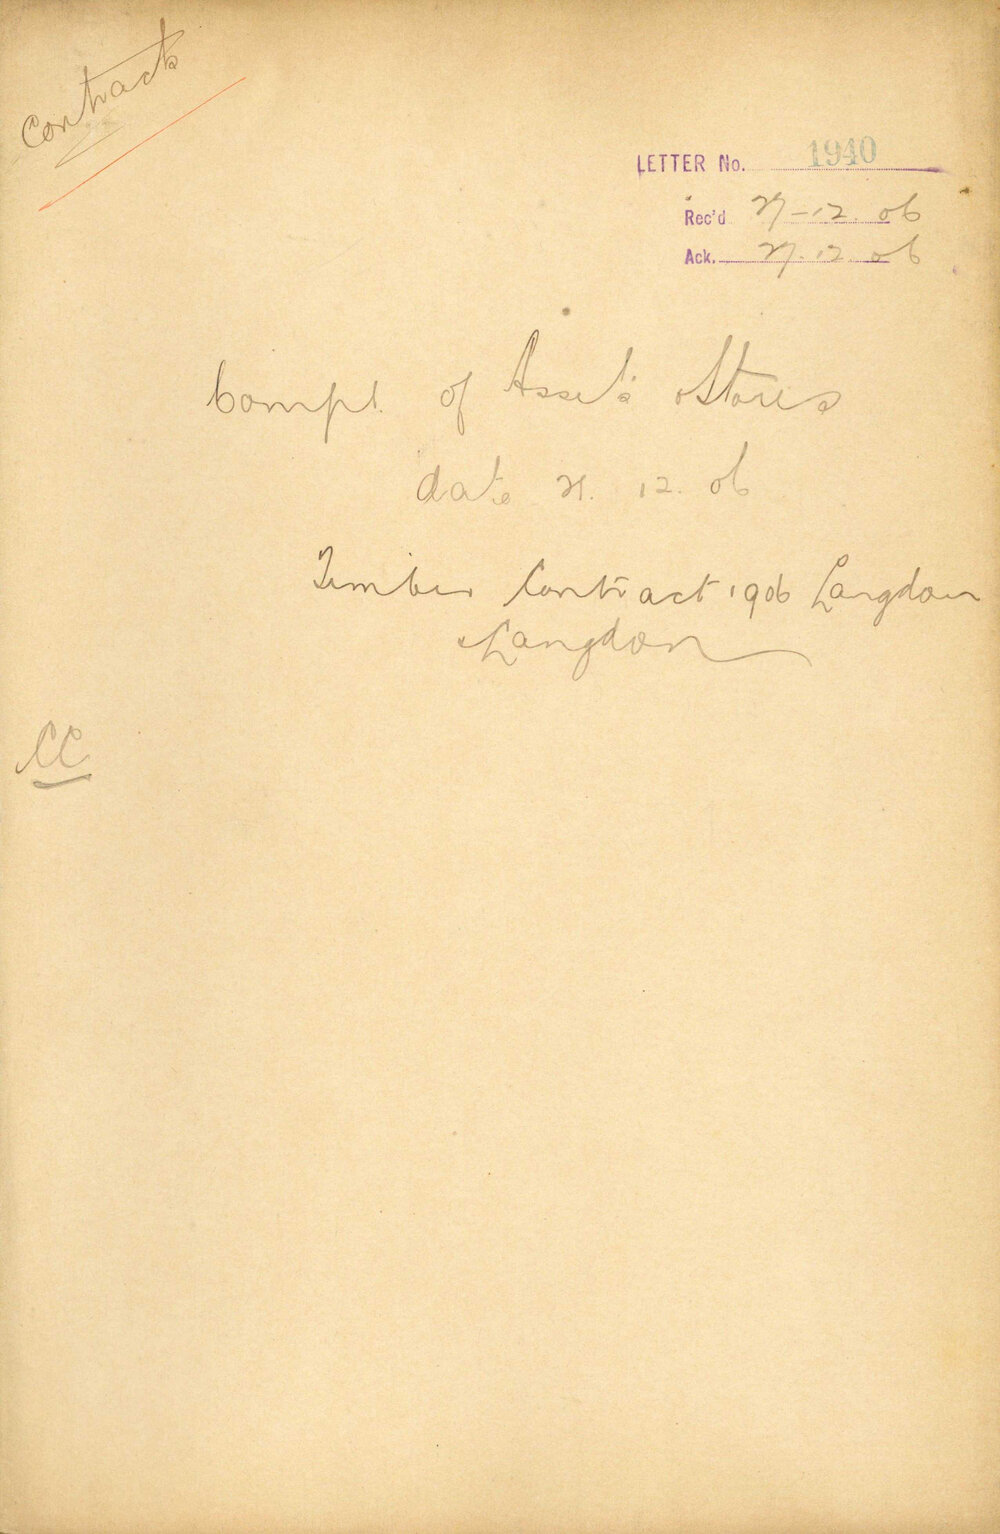 Contracts
LETTER No. 1940
Rec'd 27-12.06
Ack. 27.12.06
Compt. of Asset's & Stores
date 21. 12. 06
Timber Contract 1906 Langdon
& Langdon
CC